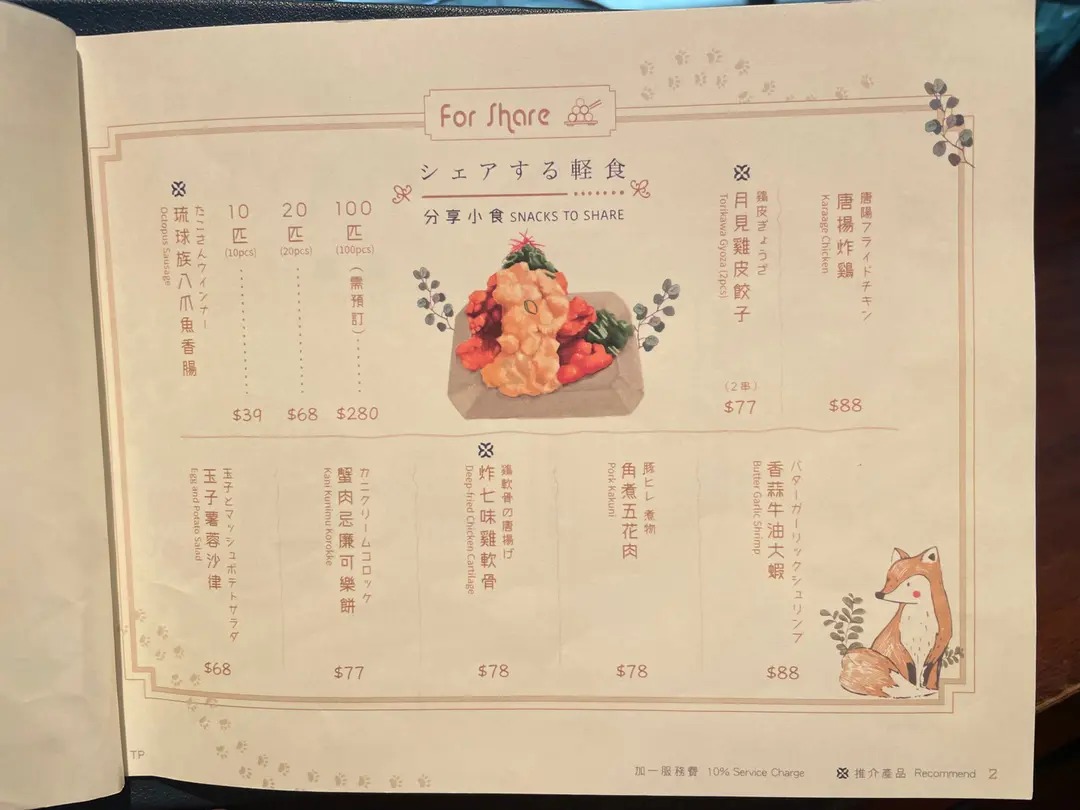 For Share
シェアする軽食
分享小食 SNACKS TO SHARE
唐陽フライドチキン
唐揚炸鷄
Karaage Chicken
$88
鷄皮ぎょうざ
月見雞皮餃子
Torikawa Gyoza (2pcs)
(2串)
$77
100
匹
(100pcs)
(需預訂)
$280
20
匹
(20pcs)
$68
10
匹
(10pcs)
$39
たこさんウィンナー
琉球族八爪魚香腸
Octopus Sausage
バターガーリックシュリンプ
香蒜牛油大蝦
Butter Garlic Shrimp
$88
豚ヒレ煮物
角煮五花肉
Pork Kakuni
$78
鷄軟骨の唐揚げ
炸七味雞軟骨
Deep-fried Chicken Cartilage
$78
カニクリームコロッケ
蟹肉忌廉可樂餅
Kani Kurimu Korokke
$77
玉子とマッシュポテトサラダ
玉子薯蓉沙律
Egg and Potato Salad
$68
TP
加一服務費 10% Service Charge
推介產品 Recommend 2